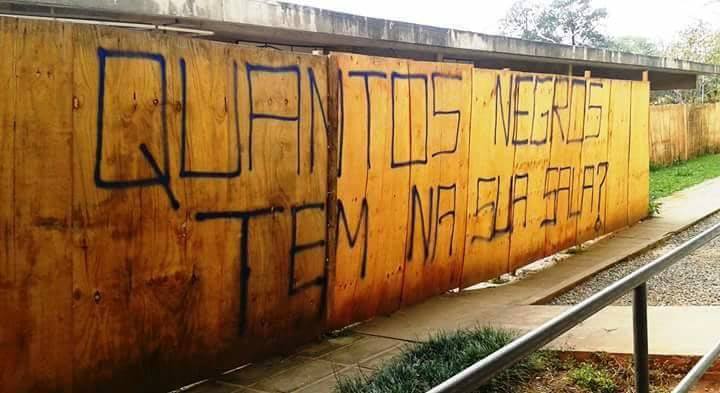 QUANTOS NEGROS
TEM NA SUA SALA?